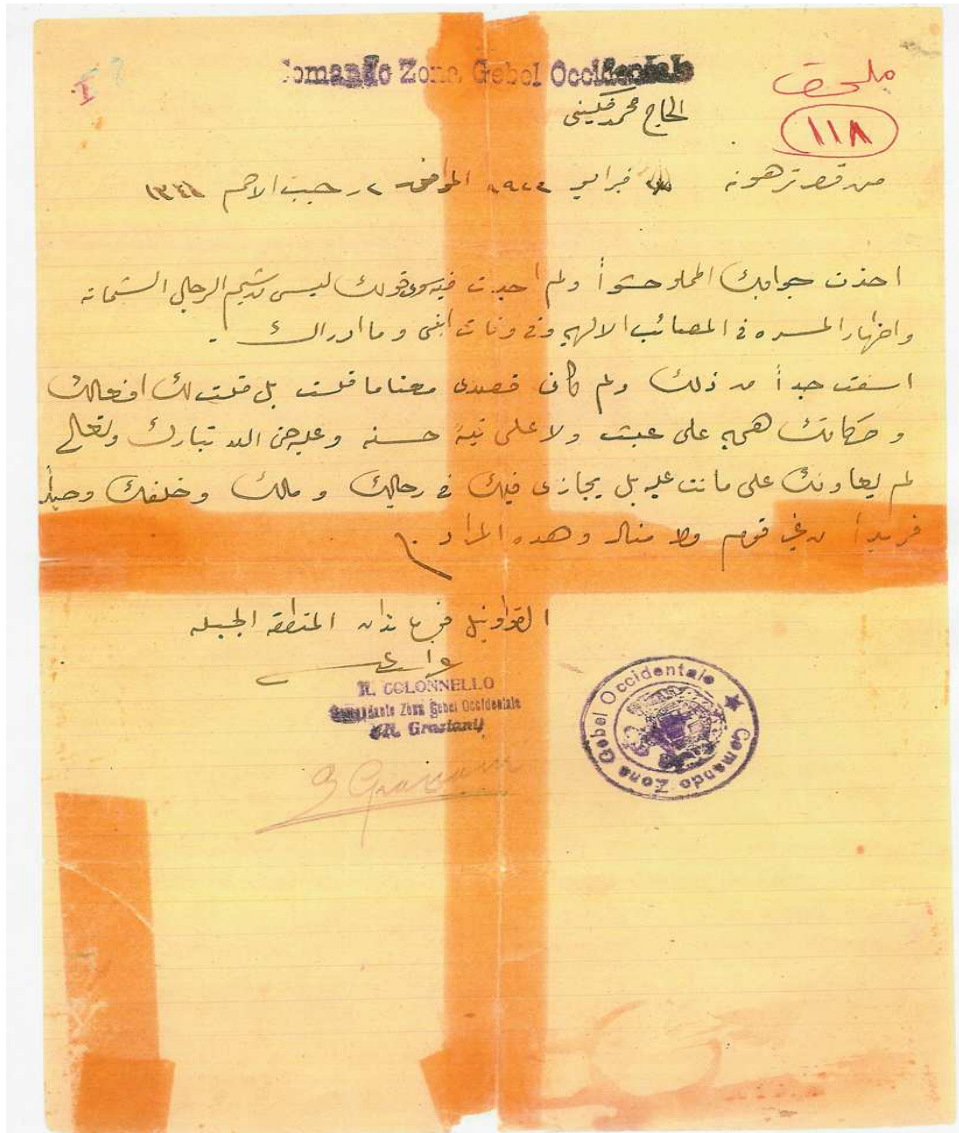 Comando Zona Gebel Occidentale
ملحق
١١٨
الحاج محمد فكيني
من قصر ترهونه فبراير ١٩٢٣ الموافق ٢ رجب الاصم ١٣٤١
اخذت جوابك المملو حشواً ولم اجد فيه سوى قولك ليس من شيم الرجال الشماته
واظهار المسره في المصائب الالهيه وفي وفات ابني وما ادراك .
اسفت جداً من ذلك ولم كان قصدي معنا ما قلت بل قلت لك افعالك
و حكاتك هي على عبث ولا على نية حسنه وعليه الله تبارك وتعالى
لم يعاونك على ما انت عليه بل يجازى فيك في رجالك و مالك وخلفك وحيداً
فريداً من غير قوم ولا منال وهده المراد
المنطقه الجبليه
غراسياني
IL COLONNELLO
Comandante Zona Gebel Occidentale
(R. Graziani)
Comando Zona Gebel Occidentale